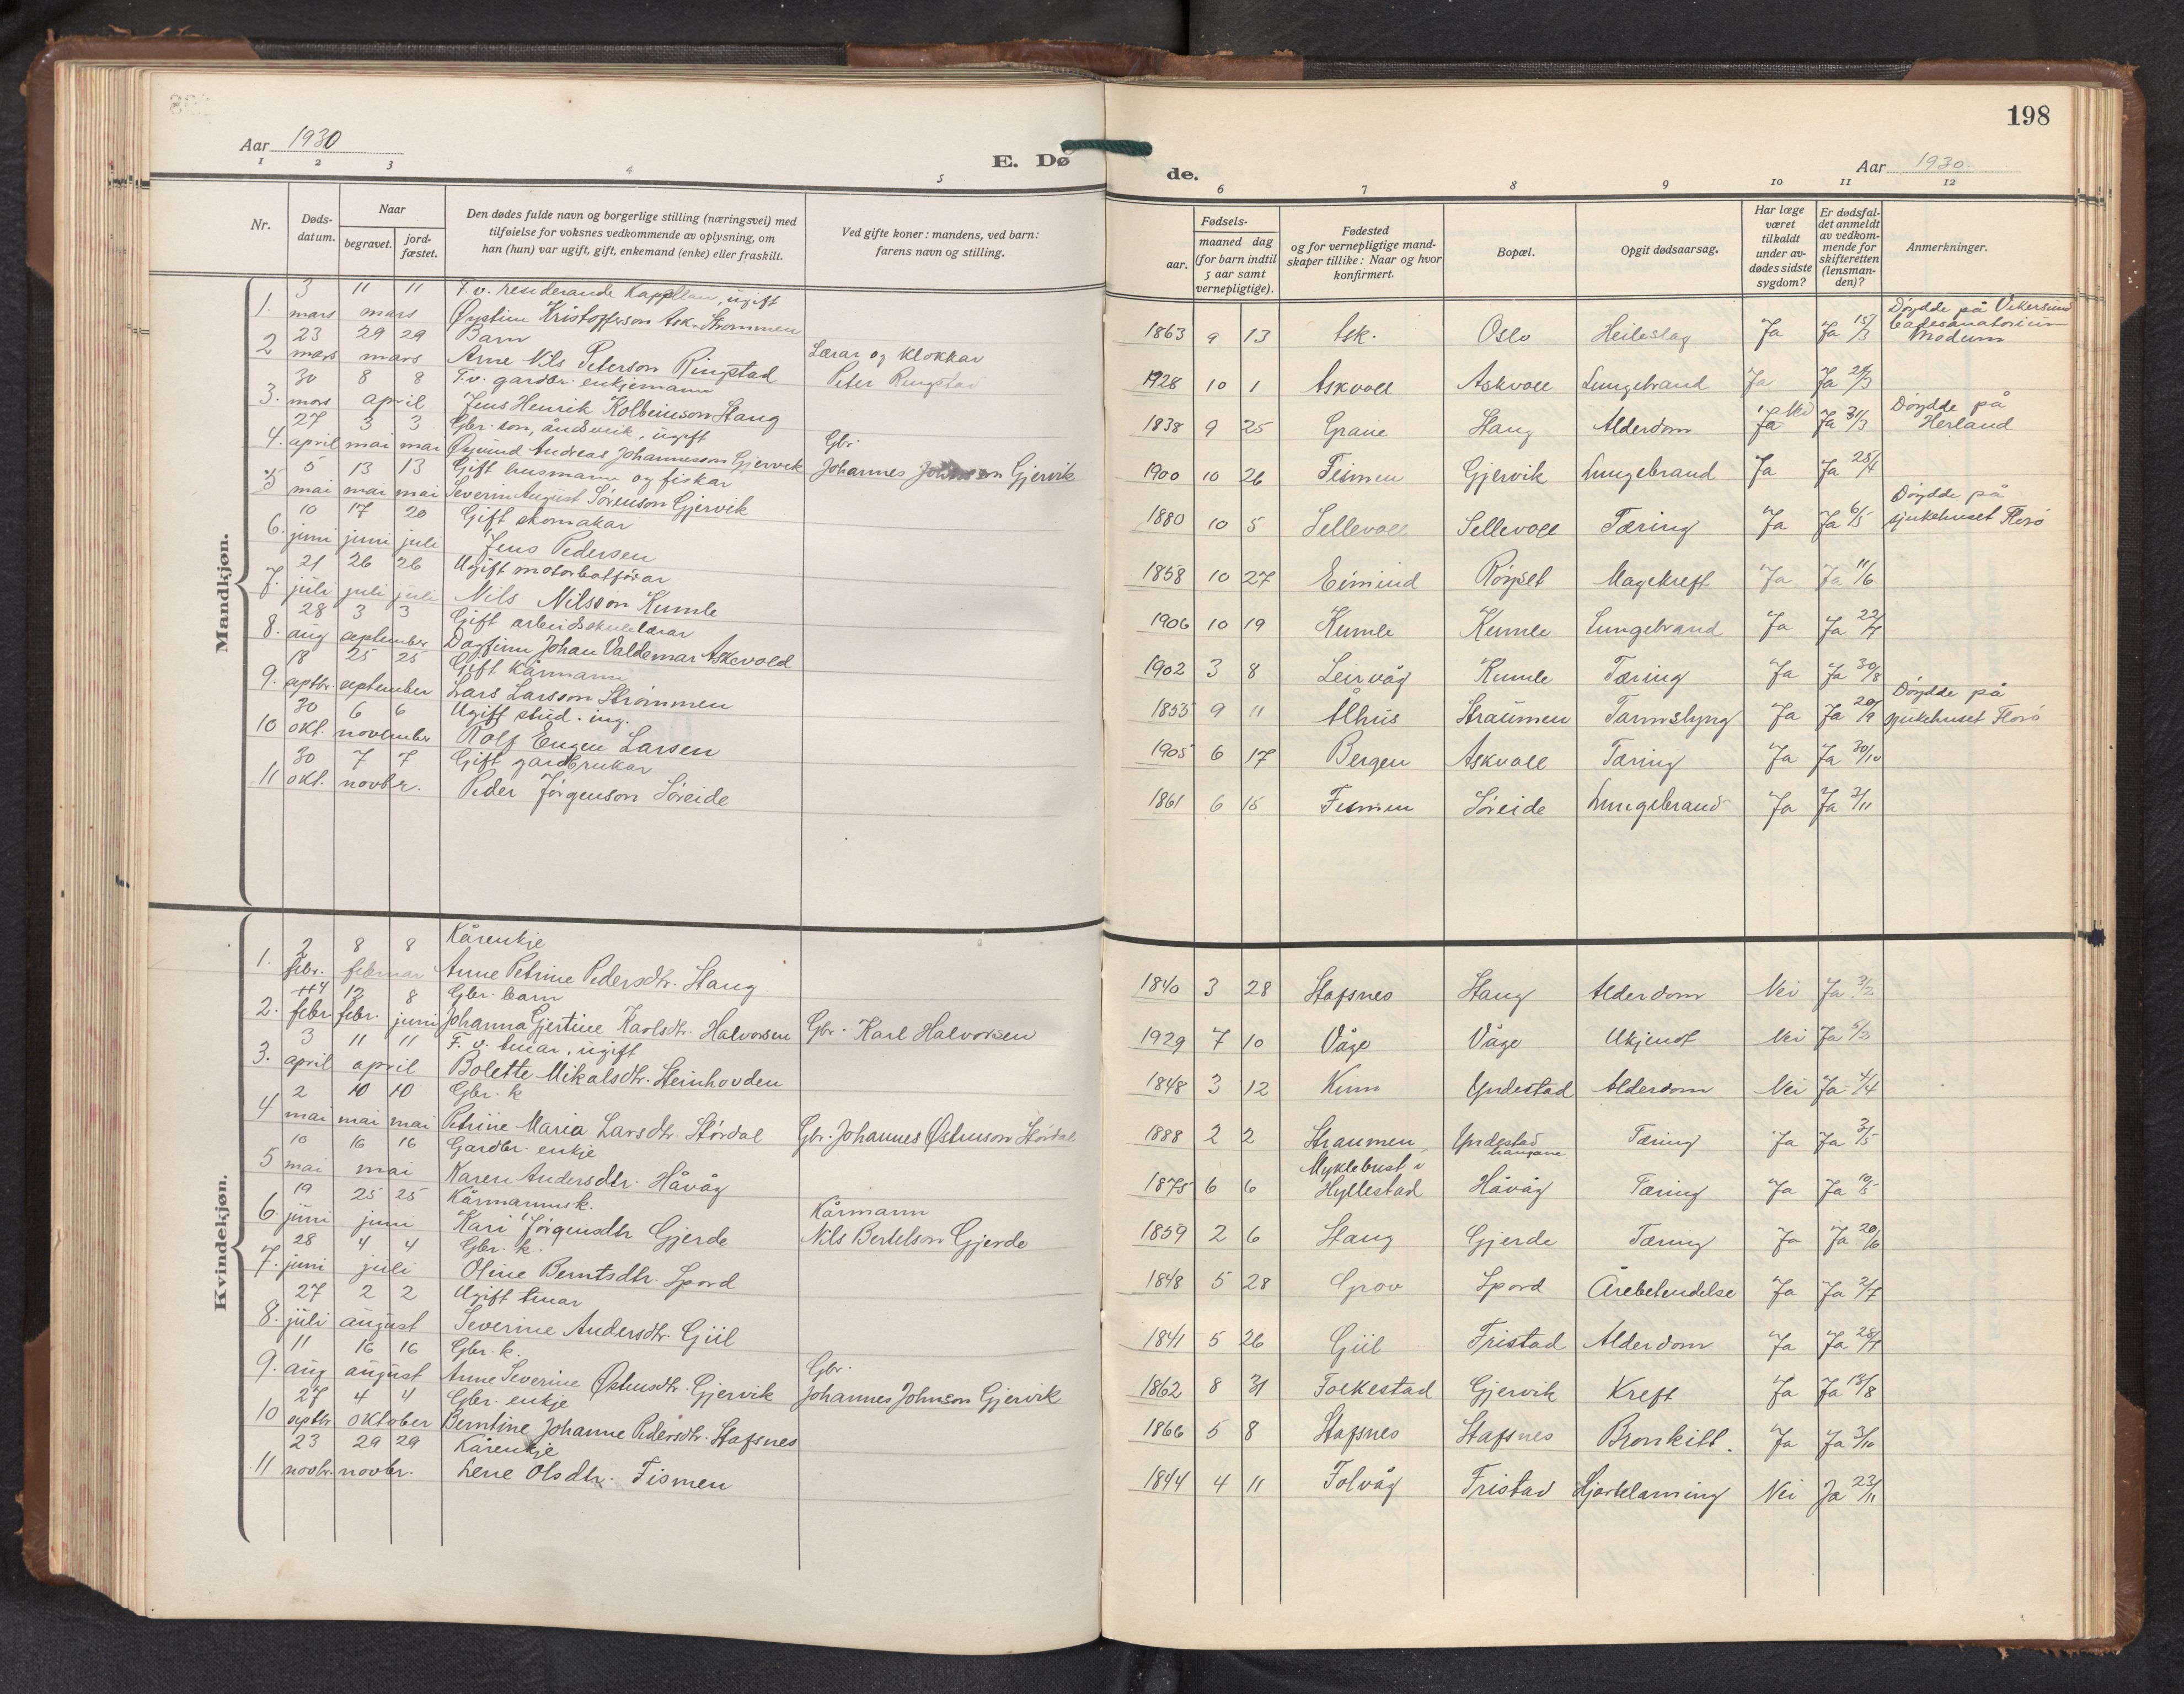 Aar 1930
E. Dø
1 2 3 4 5
Nr.
Døds-datum.
Naar
begravet.
jord-fæstet.
Den dødes fulde navn og borgerlige stilling (næringsvei) med
tilføielse for voksnes vedkommende av oplysning, om
han (hun) var ugift, gift, enkemand (enke) eller fraskilt.
Ved gifte koner: mandens, ved barn:
farens navn og stilling.
Mandkjøn.
3 11 11 F. v. residerande Kappellan, ugift
1. mars mars Øystein Kristofferson Ask-Strømmen
23 29 29 Barn Lærar og klokkar
2 mars mars Arne Nils Peterson Ringstad Peter Ringstad
30 8 8 F.v. gardbr. enkjemann
3. mars april Jens Henrik Kolbeinson Stang
27 3 3 Gbr. son, åndsveik, ugift Gbr.
4. april mai mai Øyvind Andreas Johannesson Gjervik Johannes Johnson Gjervik
5 13 13 Gift husmann og fiskar
5 mai mai mai Severin August Sørenson Gjervik
10 17 20 Gift skomakar
6. juni juni juli Jens Pedersen
21 26 26 Ugift motorbatførar
7. juli juli juli Nils Nilsson Kumle
28 3 3 Gift arbeidsskulelærar
8. aug september Dagfinn Johan Valdemar Askevold
18 25 25 Gift kårmann
9. septbr. september Lars Larsson Strømmen
30 6 6 Ugift stud. ing.
10 okt. november Rolf Eugen Larsen
30 7 7 Gift gardbrukar
11 okt. novbr. Peder Jørgenson Søreide
Kvindekjøn.
2 8 8 Kårenkje
1. febr. februar Anne Petrine Pedersdtr. Stang
4 12 8 Gbr. barn
2. febr febr. juni Johanna Gjertine Karlsdtr. Halvorsen Gbr. Karl Halvorsen
3 11 11 F. v. tenar, ugift
3. april april Bolette Mikalsdtr. Steinhovden
2 10 10 Gbr. k
4 mai mai mai Petrine Maria Larsdtr. Stórdal Gbr. Johannes Østenson Stórdal
10 16 16 Gardbr. enkje
5 mai mai Karen Andersdtr. Håvåg
19 25 25 Kårmannsk. Kårmann
6. juni juni Kari Jørgensdtr Gjerde Nils Bertelson Gjerde
28 4 4 Gbr. k.
7. juni juli Oline Berntsdtr. Spord
27 2 2 Ugift tenar
8. juli august Severine Andersdtr. Giil
11 16 16 Gbr. k. Gbr.
9. aug august Anne Severine Østensdtr. Gjervik Johannes Johnson Gjervik
27 4 4 Gbr. enkje
10 septbr oktober Berntine Johanne Pedersdtr. Stafsnes
23 29 29 Kårenkje
11 novbr. novbr. Lene Olsdtr. Fismen
198
de.
Aar 1930
6 7 8 9 10 11 12
Fødsels-
aar.
maaned dag
(for barn indtil
5 aar samt
vernepligtige).
Fødested
og for vernepligtige mand-
skaper tillike: Naar og hvor
konfirmert.
Bopæl.
Opgit dødsaarsag.
Har læge
været
tilkaldt
under av-
dødes sidste
sygdom?
Er dødsfal-
det anmeldt
av vedkom-
mende for
skifteretten
(lensman-
den)?
Anmerkninger.
1863 9 13 Ask. Oslo Heileslag Ja Ja 15/3 Døydde på Vikersund badesanatorium Modum
1928 10 1 Askvoll Askvoll Lungebrand Ja Ja 24/3
1838 9 25 Grane Stang Alderdom Ja Nei Ja 31/3 Døydde på Herland
1900 10 26 Feismen Gjervik Lungebrand Ja Ja 28/4
1880 10 5 Sellevoll Sellevoll Tæring Ja Ja 6/5 Døydde på sjukehuset Florø
1858 10 27 Eimind Røyset Magekreft Ja Ja 11/6
1906 10 19 Kumle Kumle Lungebrand Ja Ja 22/7
1902 3 8 Leirvåg Kumle Tæring Ja Ja 30/8
1853 9 11 Ålhus Straumen Tarmslyng Ja Ja 20/9 Døydde på sjukehuset Florø
1905 6 17 Bergen Askvoll Tæring Ja Ja 30/10
1861 6 15 Fismen Søreide Lungebrand Ja Ja 3/11
1840 3 28 Stafsnes Stang Alderdom Nei Ja 3/2
1929 7 10 Våge Våge Ukjent Nei Ja 5/2
1848 3 12 Kinn Yndestad Alderdom Nei Ja 4/4
1888 2 2 Straumen Yndestad haugane Tæring Ja Ja 3/5
1875 6 6 Myklebust i Hyllestad Håvåg Tæring Ja Ja 10/5
1859 2 6 Stang Gjerde Tæring Ja Ja 20/6
1848 5 28 Grov Spord Årebetendelse Ja Ja 2/7
1841 5 26 Giil Fristad Alderdom Ja Ja 28/7
1862 8 31 Folkestad Gjervik Kreft Ja Ja 13/8
1866 5 8 Stafsnes Stafsnes Bronkitt. Ja Ja 3/10
1844 4 11 Folvåg Fristad Hjartelamning Nei Ja 23/11